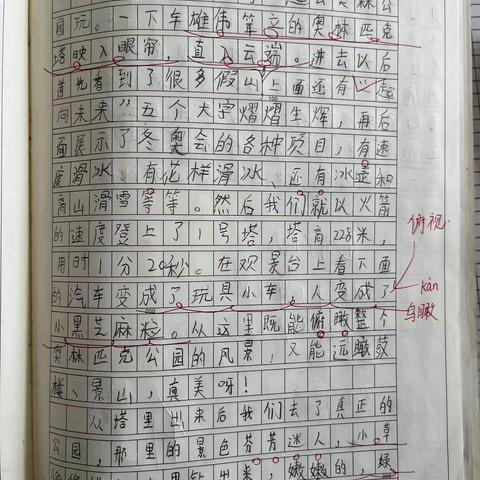 园玩。一下车雄伟耸立的奥林匹克
塔映入眼帘，直入云端。进去以后
首先看到了很多假山上面还有“一起
向未来”五个大字熠熠生辉，再后
面展示了冬奥会的各种项目，有速
度滑冰、有花样滑冰、还有冰壶和
高山滑雪等等。然后我们就以火箭
的速度登上了1号塔，塔高228米，
用时1分20秒。在观景台上看下面
俯视
的汽车变成了玩具小车，人变成了
kàn
鸟瞰
小黑芝麻粒。从这里既能俯瞰整个
奥林匹克公园的风景，又能远瞰鼓
楼、景山，真美呀！
从塔里出来后我们去了真正的
公园，那里的景色芬芳迷人，小草
出来，嫩嫩的，绿